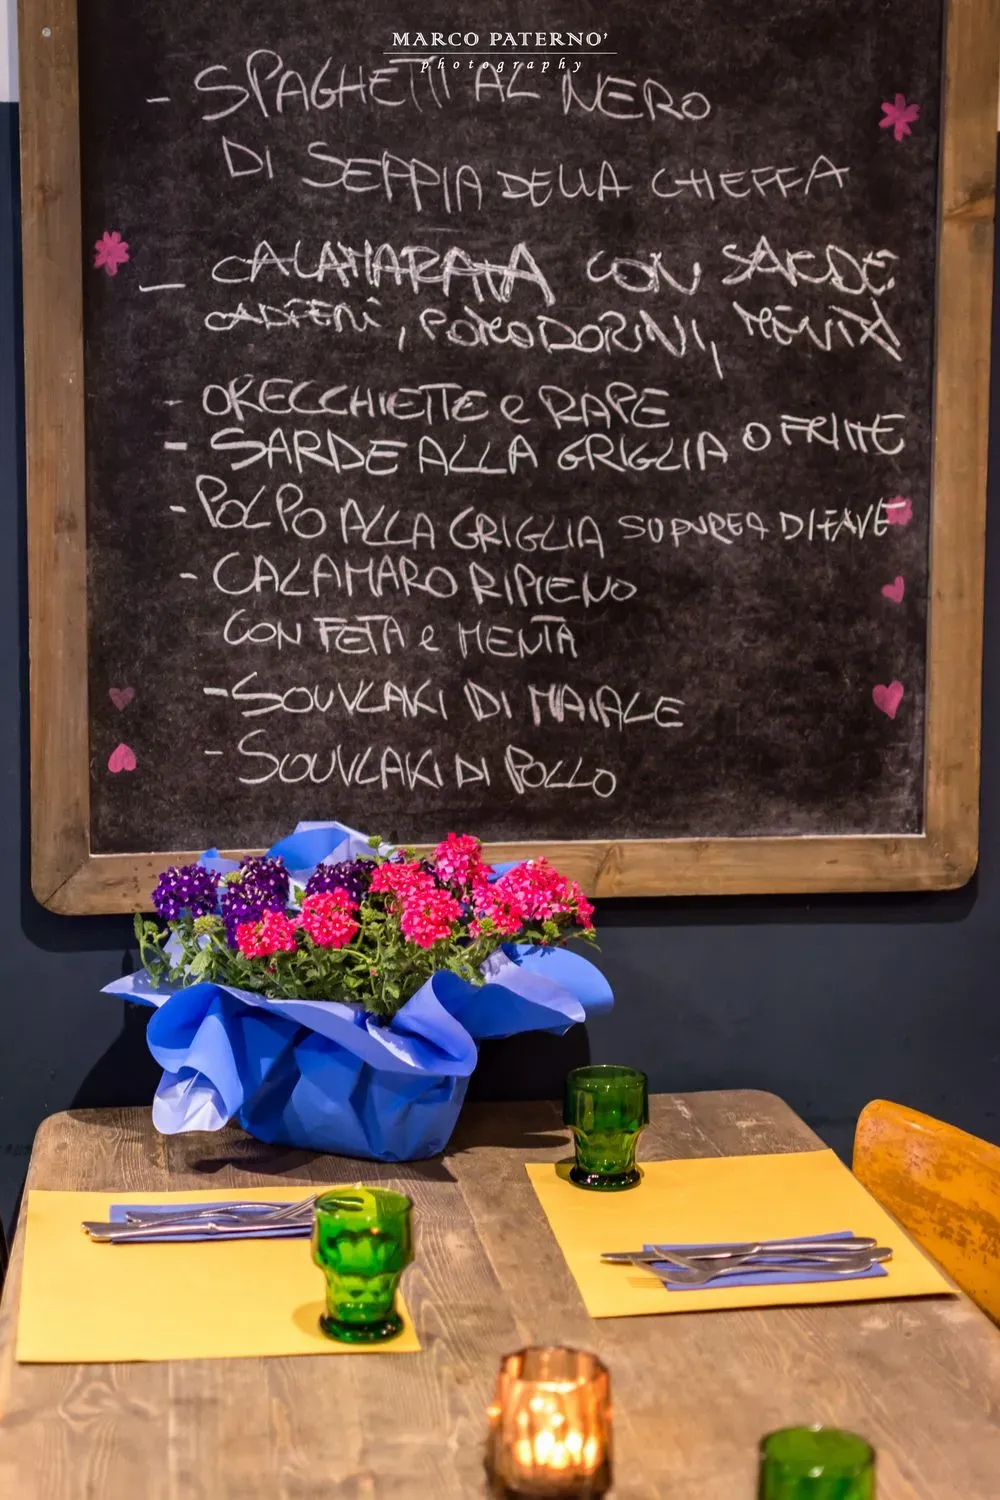 MARCO PATERNO'
photography
- SPAGHETTI AL NERO
DI SEPPIA DELLA CHEFFA
- CALAMARATA CON SARDE
, POMODORINI, MENTA
- ORECCHIETTE e RAPE
- SARDE ALLA GRIGLIA O FRITTE
- POLPO ALLA GRIGLIA SU PUREA DI FAVE
- CALAMARO RIPIENO
CON FETA e MENTA
- SOUVLAKI DI MAIALE
- SOUVLAKI DI POLLO